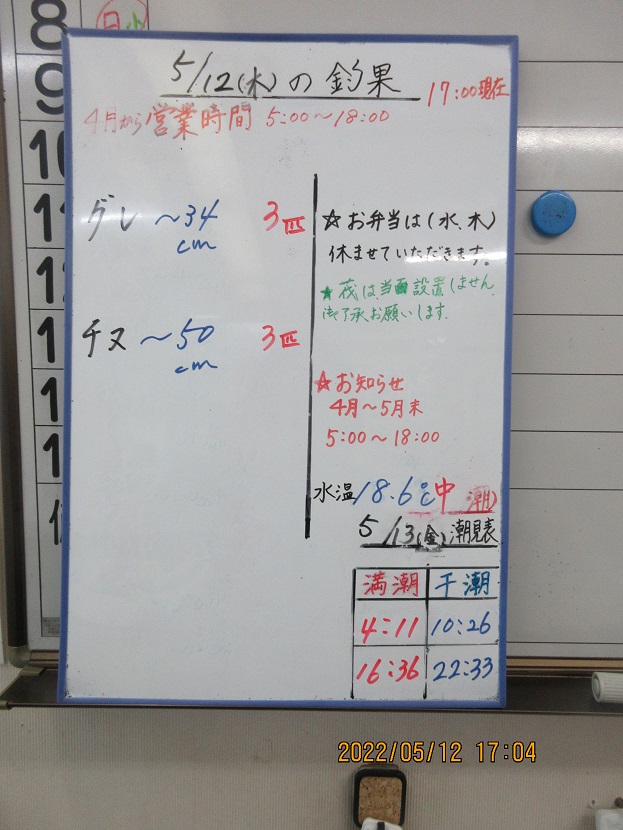 8
9
10
11
12
5/12(水)の釣果
17:00現在
4月から営業時間 5:00〜18:00
グレ 〜34cm 3匹
チヌ 〜50cm 3匹
☆お弁当は(水、木)
休ませていただきます。
★筏は当面設置しません
御了承お願いします.
☆お知らせ
4月〜5月末
5:00〜18:00
水温18.6℃ 中潮)
5/13(金)潮見表
満潮 干潮
4:11 10:26
16:36 22:33
2022/05/12 17:04